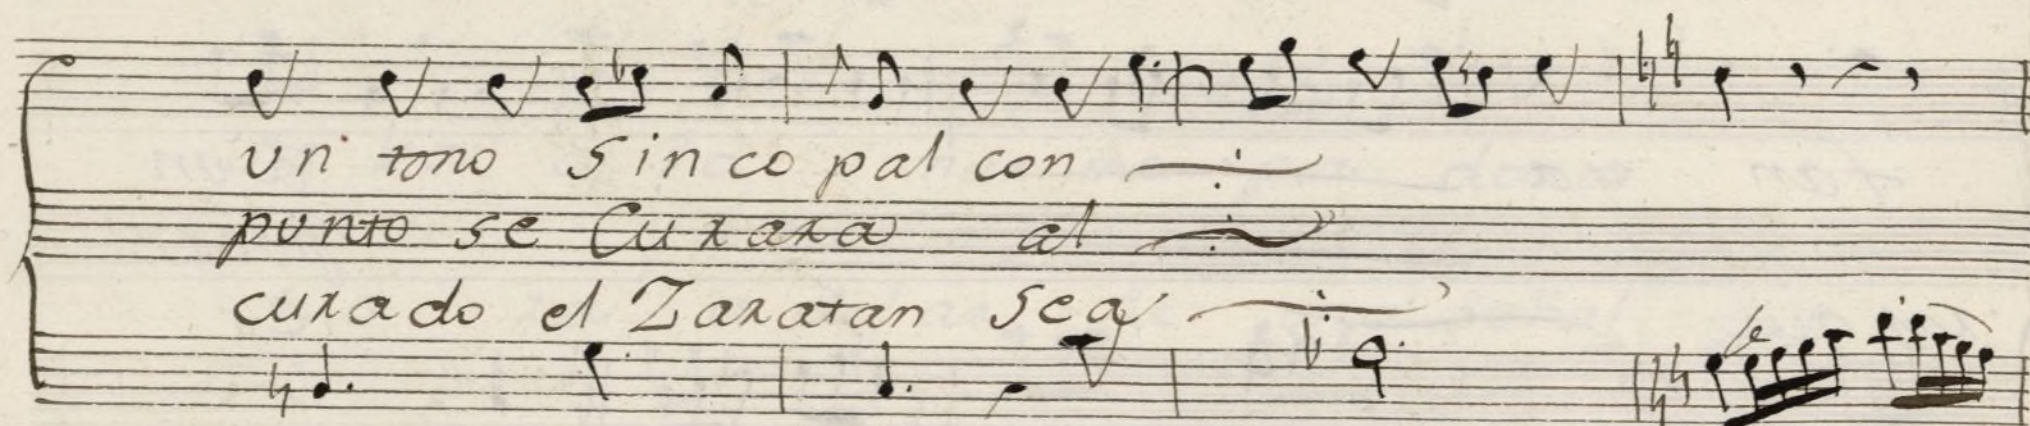 un tono sincopal con
punto se Curara al
curado el Zaratan sea